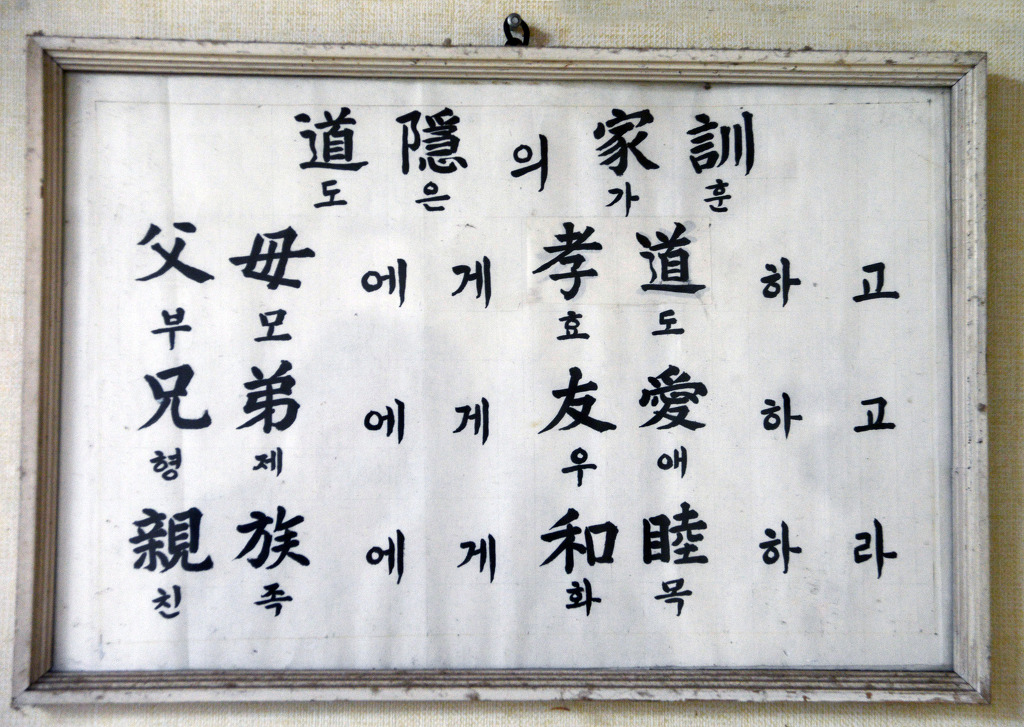 道隱의 家訓
도은 가훈
父母에게 孝道하고
부모 효도
兄弟에게 友愛하고
형제 우애
親族에게 和睦하라
친족 화목